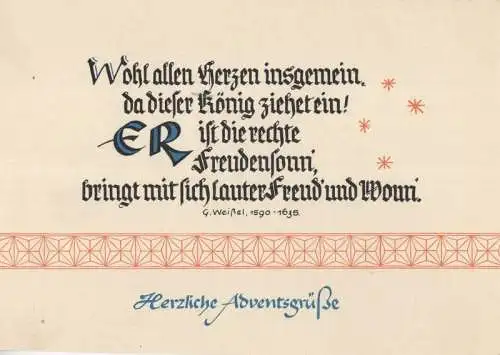 Wohl allen Herzen insgemein,
da dieser König ziehet ein!
ER ist die rechte
Freudensonn',
bringt mit sich lauter Freud' und Wonn'.
G. Weißel, 1590 - 1635
Herzliche Adventsgrüße